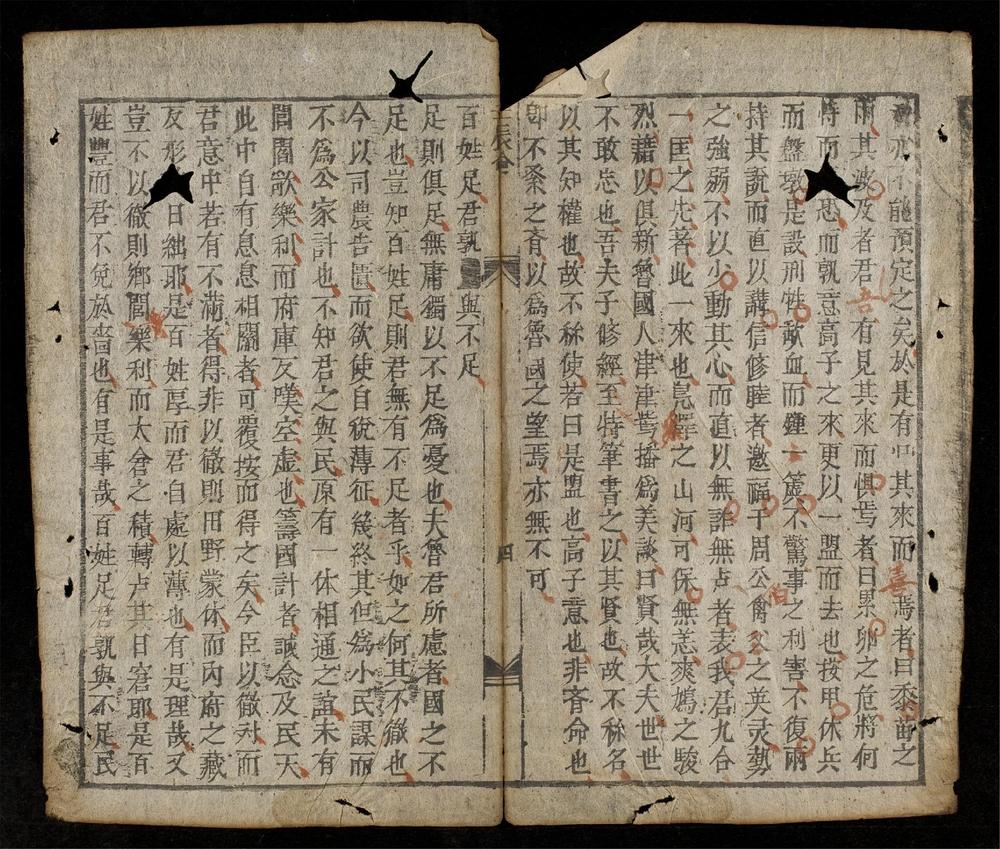 亦不能預定之矣於是有口其來而喜焉者曰黍苗之
雨其波及者君吾有見其來而懼焉者曰累卵之危將何
恃而恐而孰意高子之來更以一盟而去也按甲休兵
而盤墩是設刑牲歃血而鍾一簴不驚事之利害不復兩
持其說而直以講信修睦者邀福于周公禽父之英灵勢
伯
之強弱不以少動其心而直以無詐無占者表我君九合
一匡之先著此一來也龜繹之山河可保無恙爽鳩之駿
烈藉以俱新魯國人津津嘖播為美談曰賢哉大夫世世
不敢忘也吾夫子修經至特筆書之以其賢也故不稱名
以其知權也故不稱使若曰是盟也高子意也非齊命也
即不棄之齊以為魯國之望焉亦無不可
壬辰會
四
百姓足君孰與不足
足則俱足無庸獨以不足為憂也夫魯君所慮者國之不
足也豈知百姓足則君無有不足者乎如之何其不徹也
今以司農告匱而欲使自稅薄征幾終其但為小民謀而
不為公家計也不知君之與民原有一体相通之誼未有
閭閻歡樂利而府庫反嘆空虛也籌國計者誠念及民天
此中自有息息相關者可覆按而得之矣今臣以徹对而
君意中若有不滿者得非以徹則田野蒙休而內府之藏
反形日絀耶是百姓厚而君自處以薄也有是理哉又
豈不以徹則鄉閭樂利而太倉之積轉卢其日窘耶是百
姓豐而君不免於嗇也有是事哉百姓足君孰與不足民